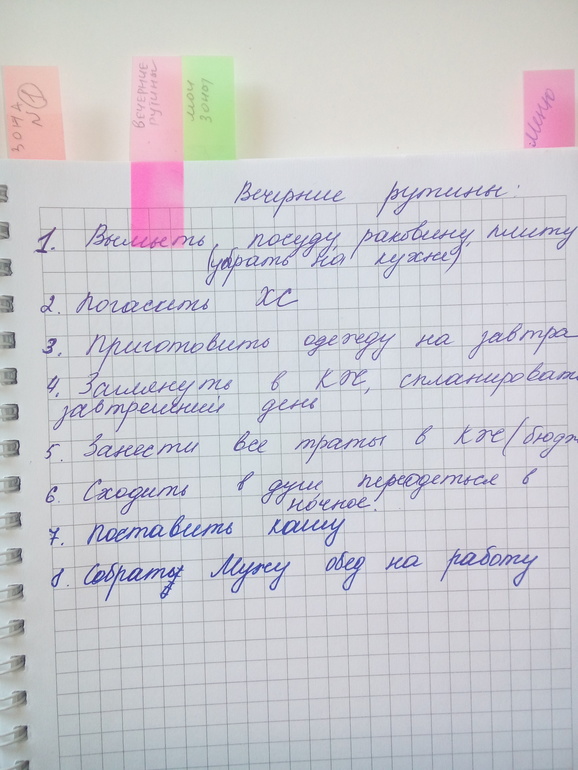 ЗОНА
№1
ВЕЧЕРНИЕ
РУТИНЫ
МОИ
ЗОНЫ
Меню
Вечерние рутины:
1. Вымыть посуду, раковину, плиту
(убрать на кухне)
2. Погасить ХС
3. Приготовить одежду на завтра
4. Заглянуть в КЖ, спланировать
завтрешний день
5. Занести все траты в КЖ (бюдж
6. Сходить в душ переодеться в
ночное.
7. Поставить кашу
8. Собрать Мужу обед на работу